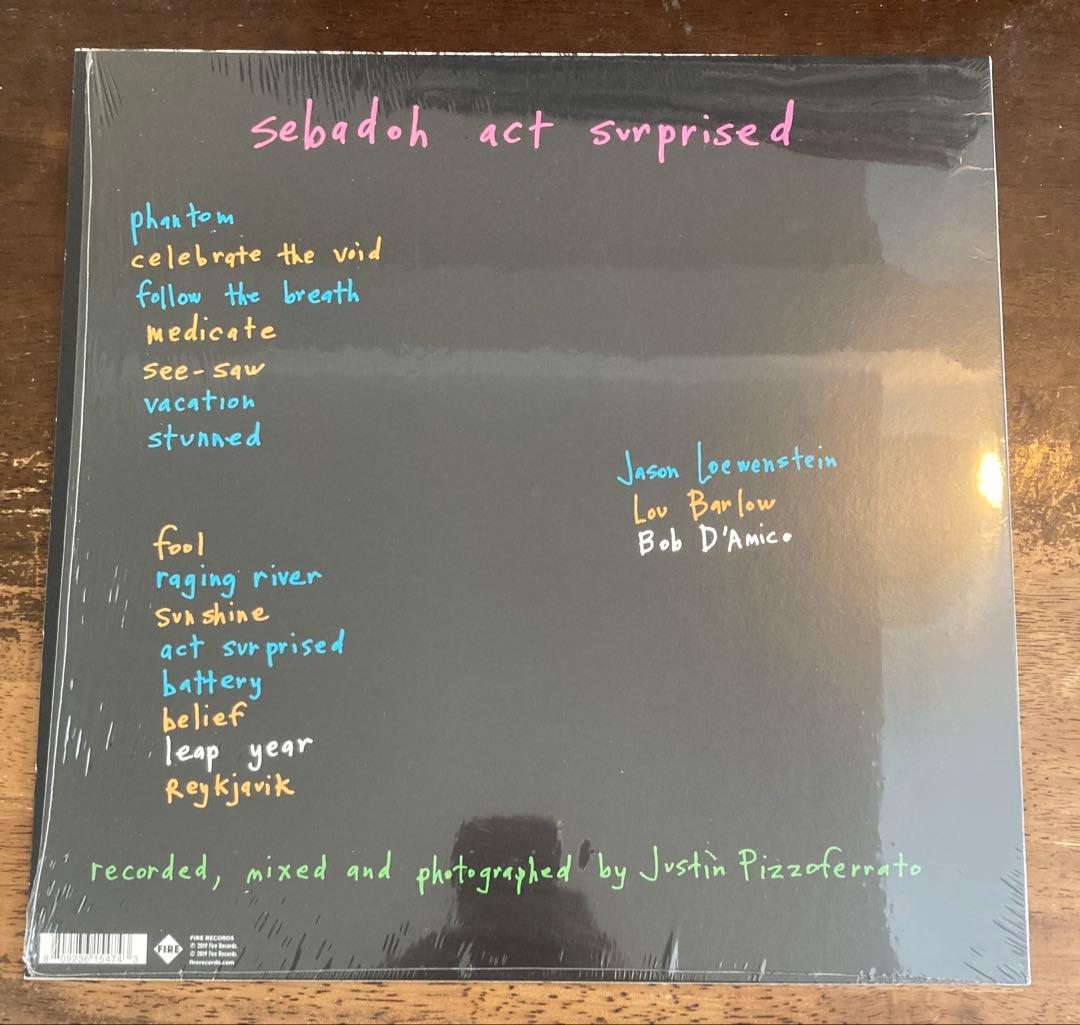 sebadoh act surprised
phantom
celebrate the void
follow the breath
medicate
see-saw
vacation
stunned
Jason Loewenstein
Lou Barlow
Bob D'Amico
fool
raging river
sunshine
act surprised
battery
belief
leap year
Reykjavik
recorded, mixed and photographed by Justin Pizzoferrato
8 09236 15474 3
FIRE
FIRE RECORDS
© 2019 Fire Records.
℗ 2019 Fire Records.
firerecords.com